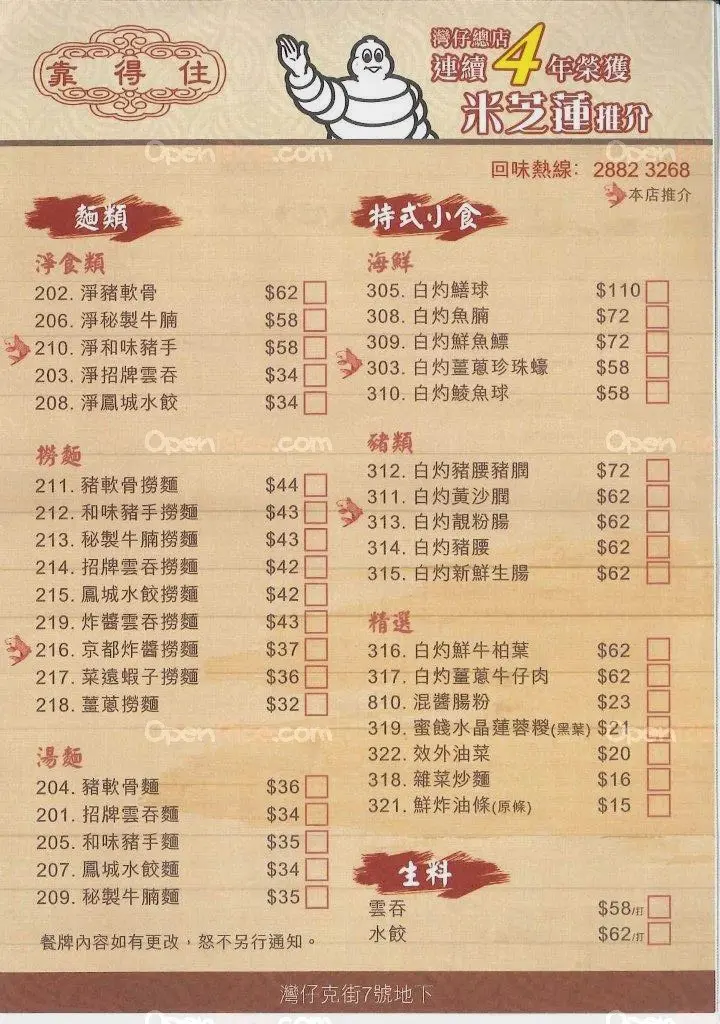 靠得住
灣仔總店
連續4年榮獲
米芝蓮推介
回味熱線: 2882 3268
本店推介
麵類
淨食類
202. 淨豬軟骨 $62
206. 淨秘製牛腩 $58
210. 淨和味豬手 $58
203. 淨招牌雲吞 $34
208. 淨鳳城水餃 $34
撈麵
211. 豬軟骨撈麵 $44
212. 和味豬手撈麵 $43
213. 秘製牛腩撈麵 $43
214. 招牌雲吞撈麵 $42
215. 鳳城水餃撈麵 $42
219. 炸醬雲吞撈麵 $43
216. 京都炸醬撈麵 $37
217. 菜遠蝦子撈麵 $36
218. 薑蔥撈麵 $32
湯麵
204. 豬軟骨麵 $36
201. 招牌雲吞麵 $34
205. 和味豬手麵 $35
207. 鳳城水餃麵 $34
209. 秘製牛腩麵 $35
餐牌內容如有更改，怒不另行通知。
特式小食
海鮮
305. 白灼鱔球 $110
308. 白灼魚腩 $72
309. 白灼鮮魚鰾 $72
303. 白灼薑蔥珍珠蠔 $58
310. 白灼鯪魚球 $58
豬類
312. 白灼豬腰豬膶 $72
311. 白灼黃沙膶 $62
313. 白灼靚粉腸 $62
314. 白灼豬腰 $62
315. 白灼新鮮生腸 $62
精選
316. 白灼鮮牛柏葉 $62
317. 白灼薑蔥牛仔肉 $62
810. 混醬腸粉 $23
319. 蜜餞水晶蓮蓉糉(黑葉) $21
322. 效外油菜 $20
318. 雜菜炒麵 $16
321. 鮮炸油條(原條) $15
生料
雲吞 $58/打
水餃 $62/打
灣仔克街7號地下